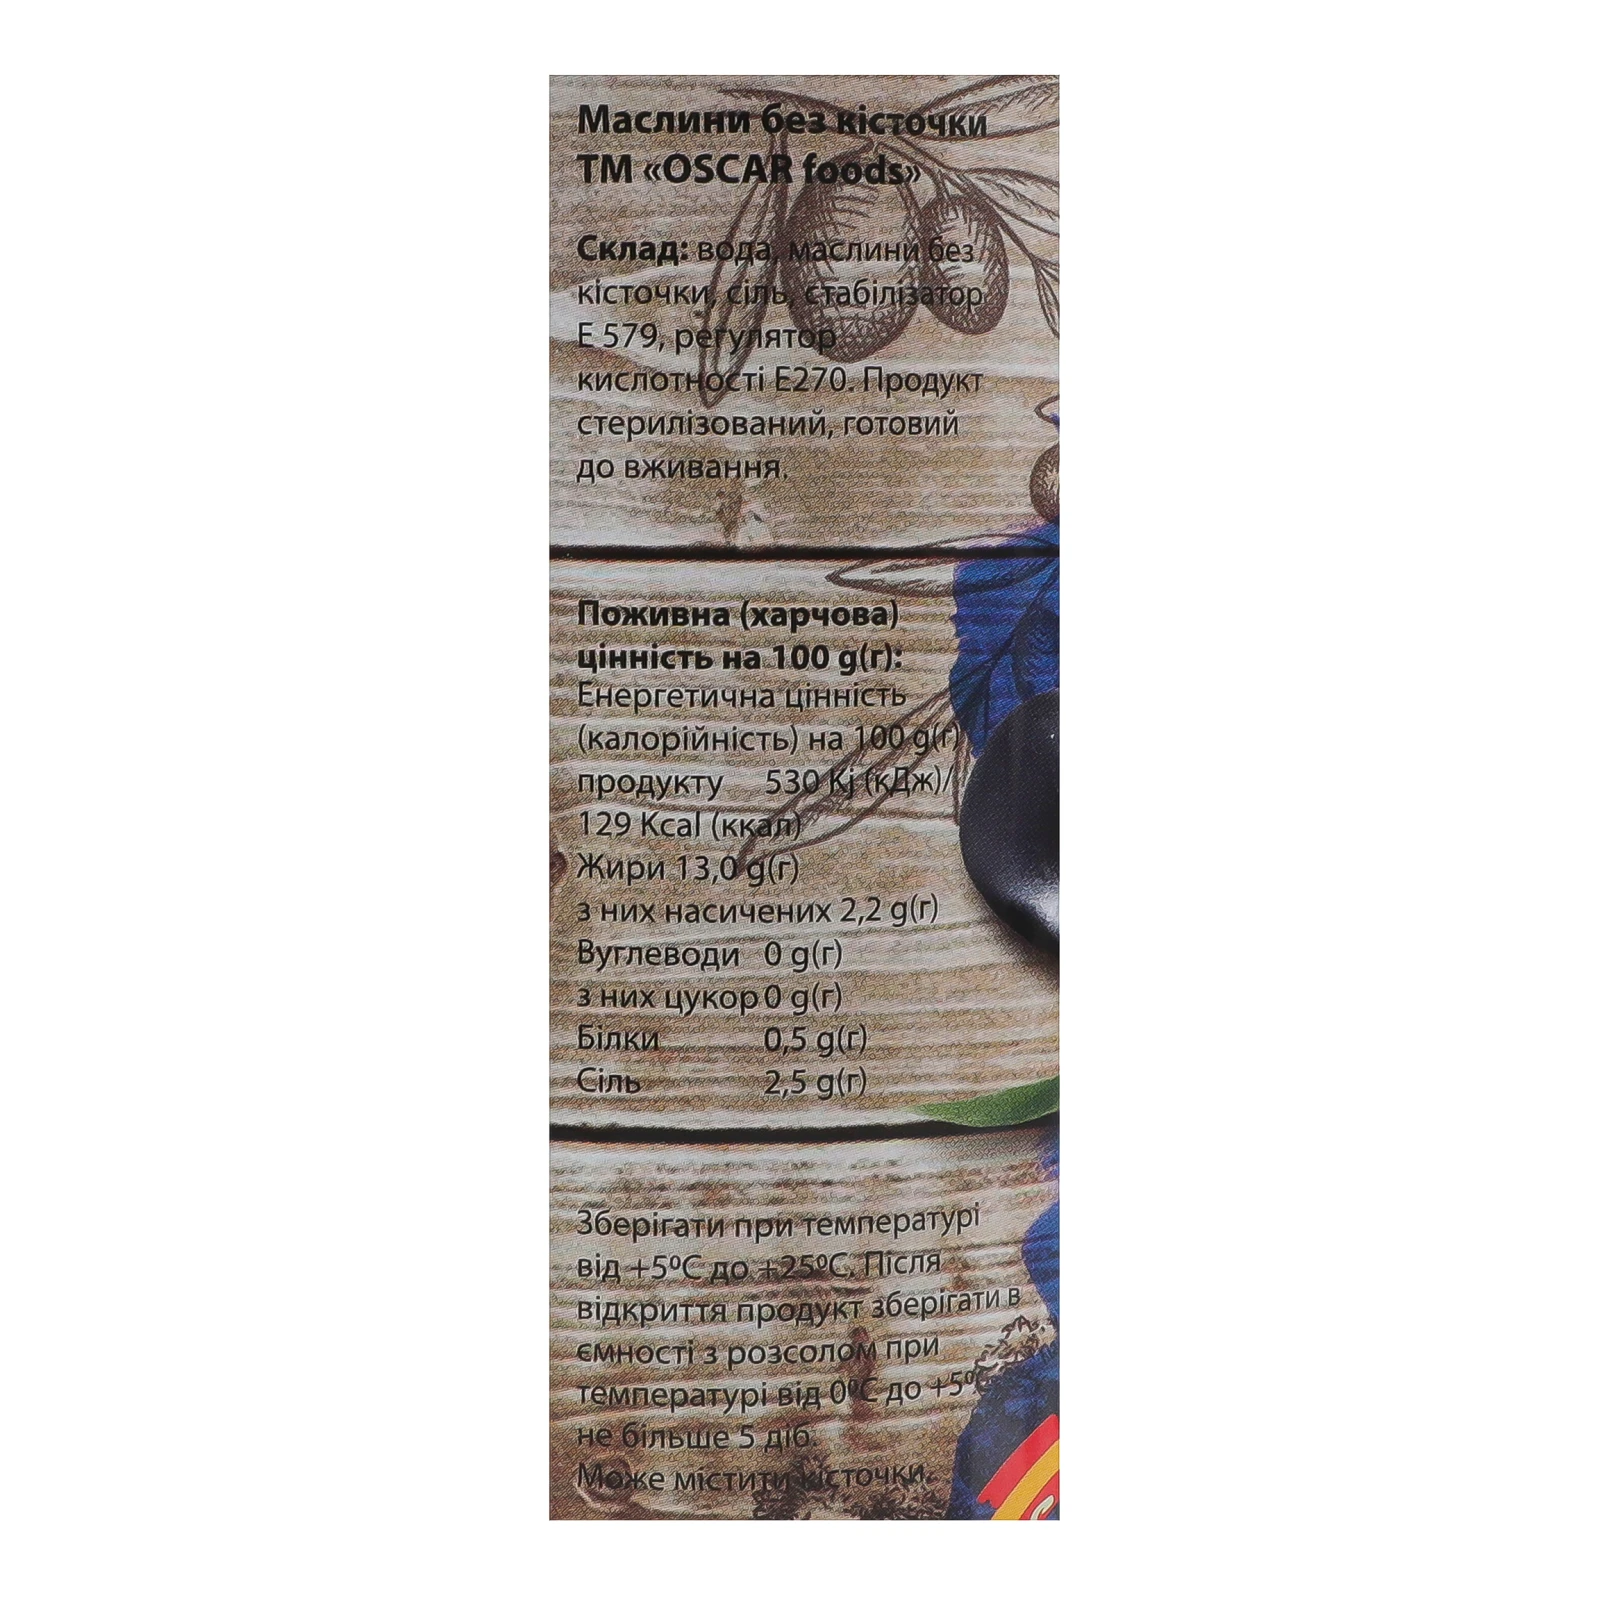 Маслини без кісточки
ТМ «OSCAR foods»
Склад: вода, маслини без
кісточки, сіль, стабілізатор
Е 579, регулятор
кислотності Е270. Продукт
стерилізований, готовий
до вживання.
Поживна (харчова)
цінність на 100 g(г):
Енергетична цінність
(калорійність) на 100 g(г)
продукту 530 Kj (кДж)/
129 Kcal (ккал)
Жири 13,0 g(г)
з них насичених 2,2 g(г)
Вуглеводи 0 g(г)
з них цукор 0 g(г)
Білки 0,5 g(г)
Сіль 2,5 g(г)
Зберігати при температурі
від +5ºС до +25ºС. Після
відкриття продукт зберігати в
ємності з розсолом при
температурі від 0ºС до +5ºС
не більше 5 діб.
Може містити кісточки.